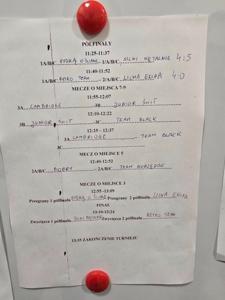 PÓŁFINAŁY
11:25-11:37
1A/B/C 1/A/B/C 4:5
11:40-11:52
1A/B/C RETRO TEAM 2/A/B/C LICHA EKIPA 4:0
MECZE O MIEJSCA 7-9
11:55-12:07
3A CAMBRIDGE 3B JUNIOR SHIT
12:10-12:22
3B JUNIOR SHIT 3C TEAM BLACK
12:25 - 12:37
3A CAMBRIDGE TEAM BLACK
3C
MECZ O MIEJSCE 5
12:40-12:52
2A/B/C 2A/B/C TEAM
MECZ O MIEJSCE 3
12:55-13:09
Przegrany 1 półfinału Przegrany 2 półfinału LICHA EKIPA
FINAŁ
13:10-13:24
Zwycięzca 1 półfinału Zwycięzca 2 półfinału RETRO TEAM
13:35 ZAKOŃCZENIE TURNIEJU